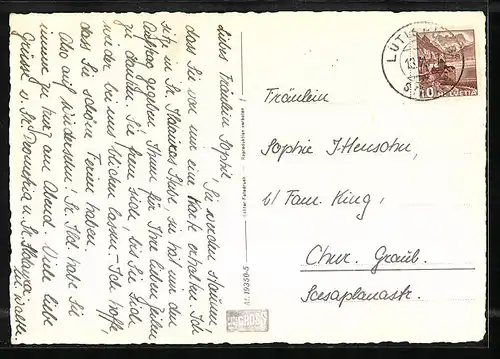 Liebes Fräulein Sophie,
Sie werden staunen,
dass Sie von mir eine Karte erhalten. Ich
sitze in Sr. Stube, sie hat mir den
Auftrag gegeben Ihnen für Ihre lieben Zeilen
zu danken. Sie freue sich, bis Sie sich
wieder bei uns blicken lassen. Ich hoffe,
dass Sie schöne Ferien haben.
Also auf Wiedersehn! Sr. Ida habe Sie
immer so kurz am Abend. Viele liebe
Grüsse v. Sr. u. Sr.
Echte Fotodruck Reproduktion verboten
Nr. 19350.5
GROSS
LÜTI
13.
10 HELVETIA
Fräulein
Sophie Ittensohn,
b/ Fam. King,
Chur. Graub.
Scesaplanastr.